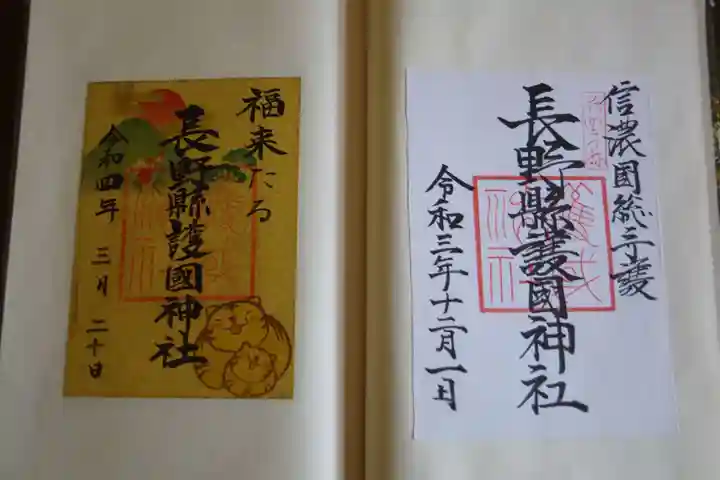 信濃国総守護
長野縣護國神社
令和三年十二月一日
福来たる
長野縣護國神社
令和四年三月二十日